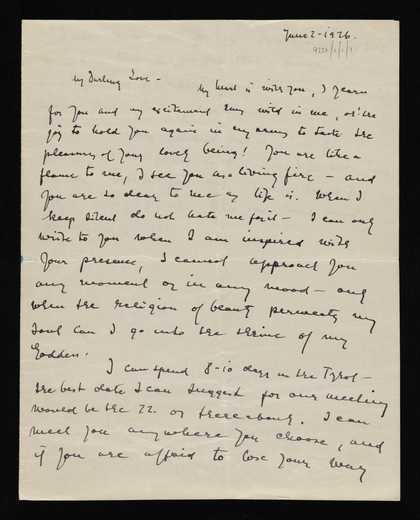 June 2-1926.
my Darling Love -
My heart is with you, I yearn
for you and my excitement runs wild in me, oh! the
joy to hold you again in my arms to taste the
pleasures of your lovely being! You are like a
flame to me, I see you as a living fire - and
you are so dear to me as life is. When I
keep silent do not hate me for it - I can only
write to you when I am inspired with
your presence, I cannot approach you
any moment or in any mood - only
when the religion of beauty permeates my
soul can I go into the shrine of my
Goddess.
I can spend 8-10 days in the Tyrol -
the best date I can suggest for our meeting
would be the 22. or thereabouts. I can
meet you anywhere you choose, and
if you are afraid to lose your way